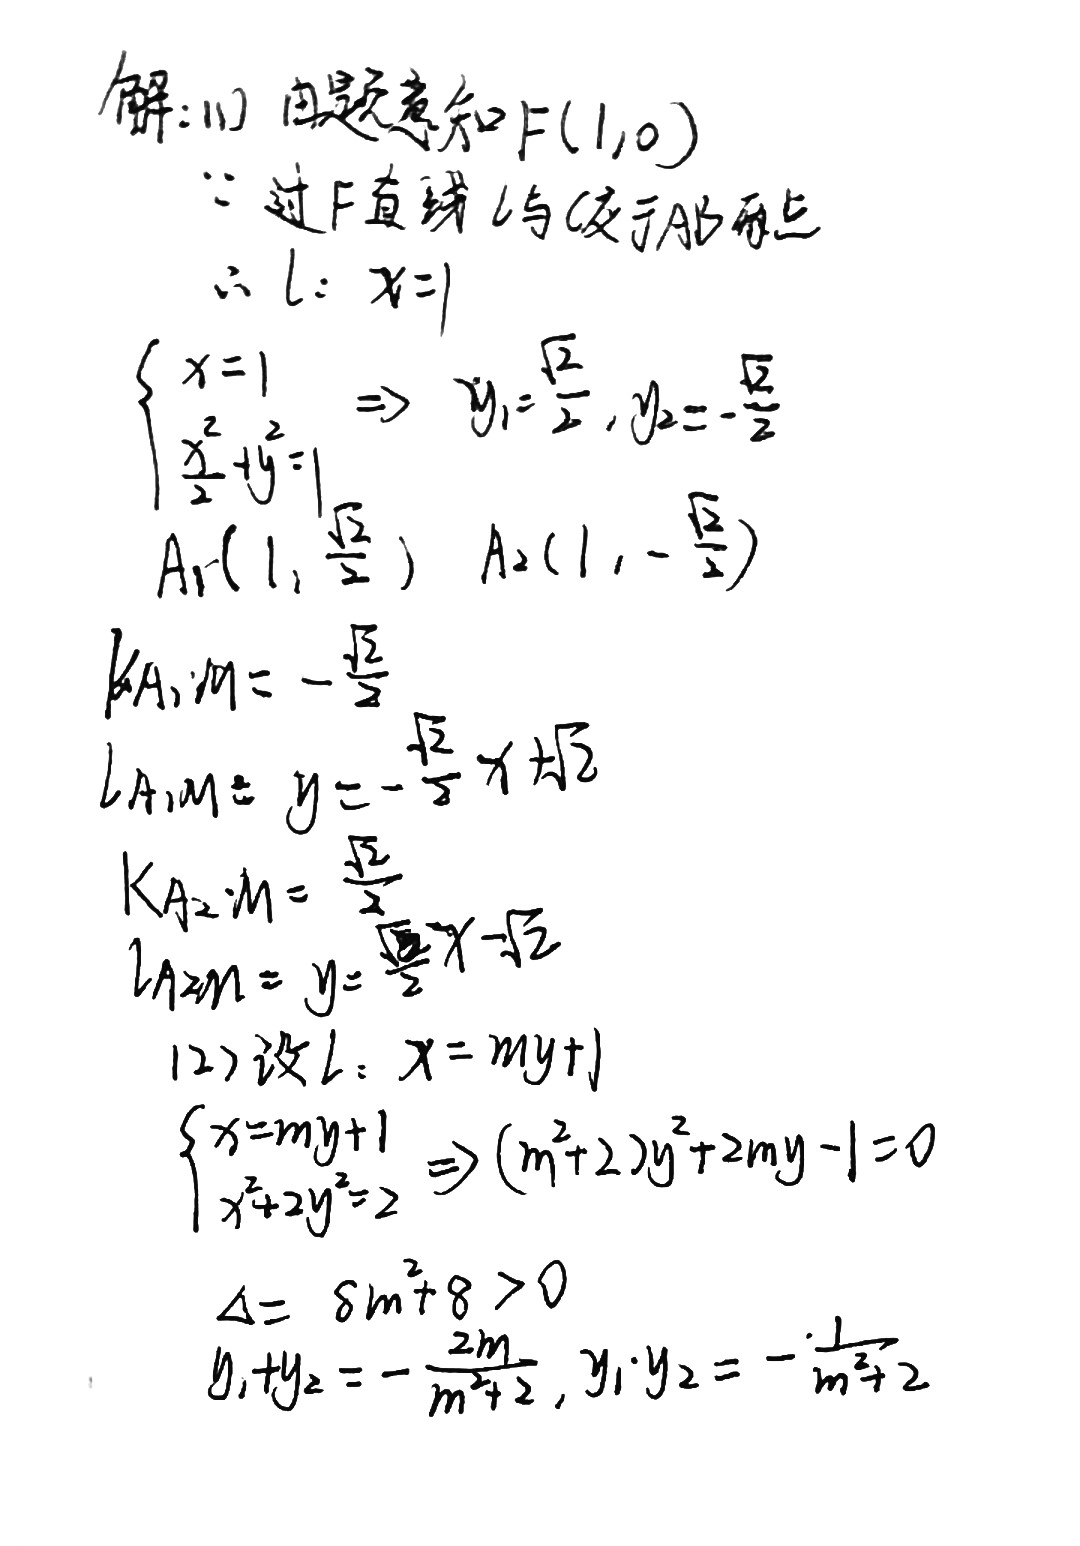 解:(1) 由题意知F(1,0)
∵ 过F直线l与C交于AB两点
∴ l: x=1
{ x=1
x²/2+y²=1 ⇒ y₁=√2/2, y₂=-√2/2
A₁(1, √2/2) A₂(1, -√2/2)
kA₁·M = -√2/2
lA₁M = y=-√2/2 x+√2
KA₂·M = √2/2
lA₂M = y=√2/2 x-√2
(2) 设l: x=my+1
{ x=my+1
x²+2y²=2 ⇒ (m²+2)y²+2my-1=0
Δ= 8m²+8>0
y₁+y₂ = -2m/(m²+2), y₁·y₂ = -1/(m²+2)